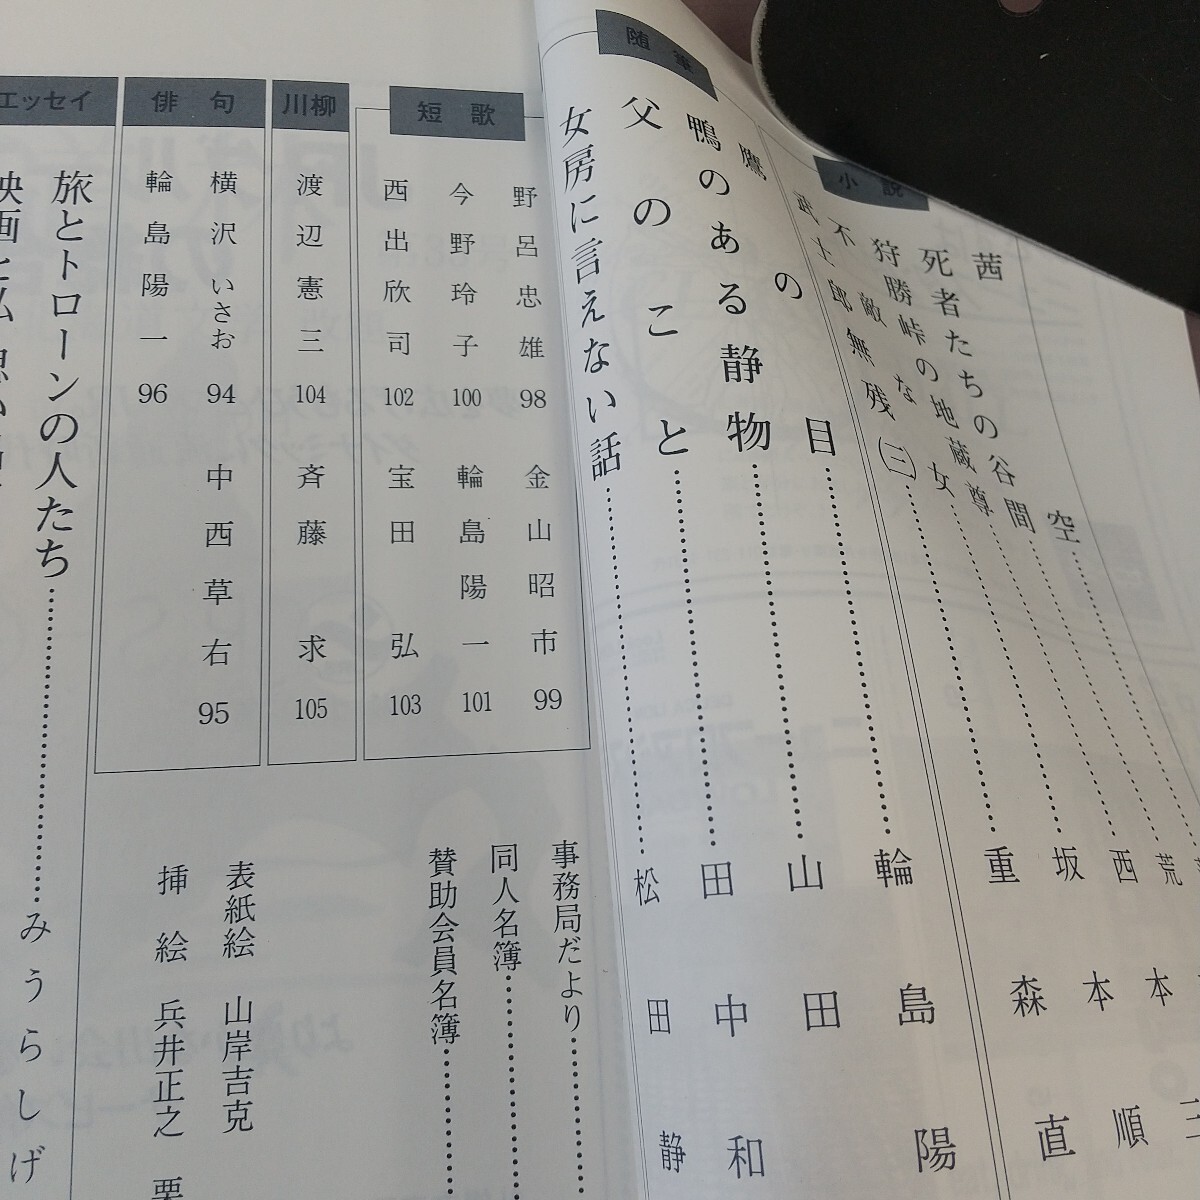 小説
茜空
死者たちの谷間
狩勝峠の地蔵尊
不敵な女
武士郎無残(三)
荒
西本
坂本順
重森直
随筆
鷹の目
輪島陽
鴨のある静物
山田
父のこと
田中和
女房に言えない話
松田静
短歌
野呂忠雄 98
金山昭市 99
今野玲子 100
輪島陽一 101
西出欣司 102
宝田弘 103
川柳
渡辺憲三 104
斉藤求 105
俳句
横沢いさお 94
中西草右 95
輪島陽一 96
エッセイ
旅とトローンの人たち
みうらしげ
事務局だより
同人名簿
賛助会員名簿
表紙絵 山岸吉克
挿絵 兵井正之